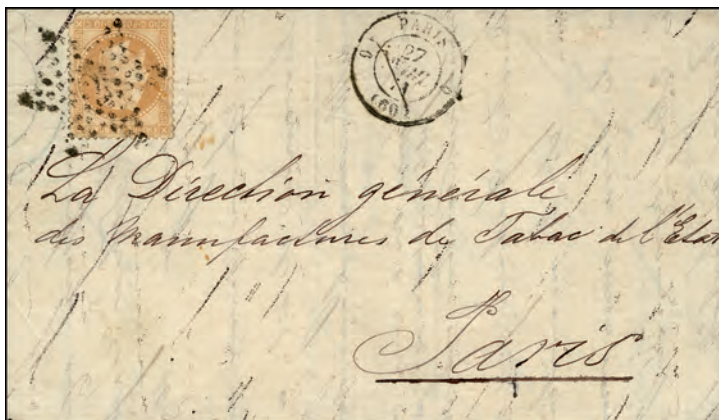 PARIS
27
(60)
La Direction générale
des Manufactures de Tabac de l'Etat
Paris